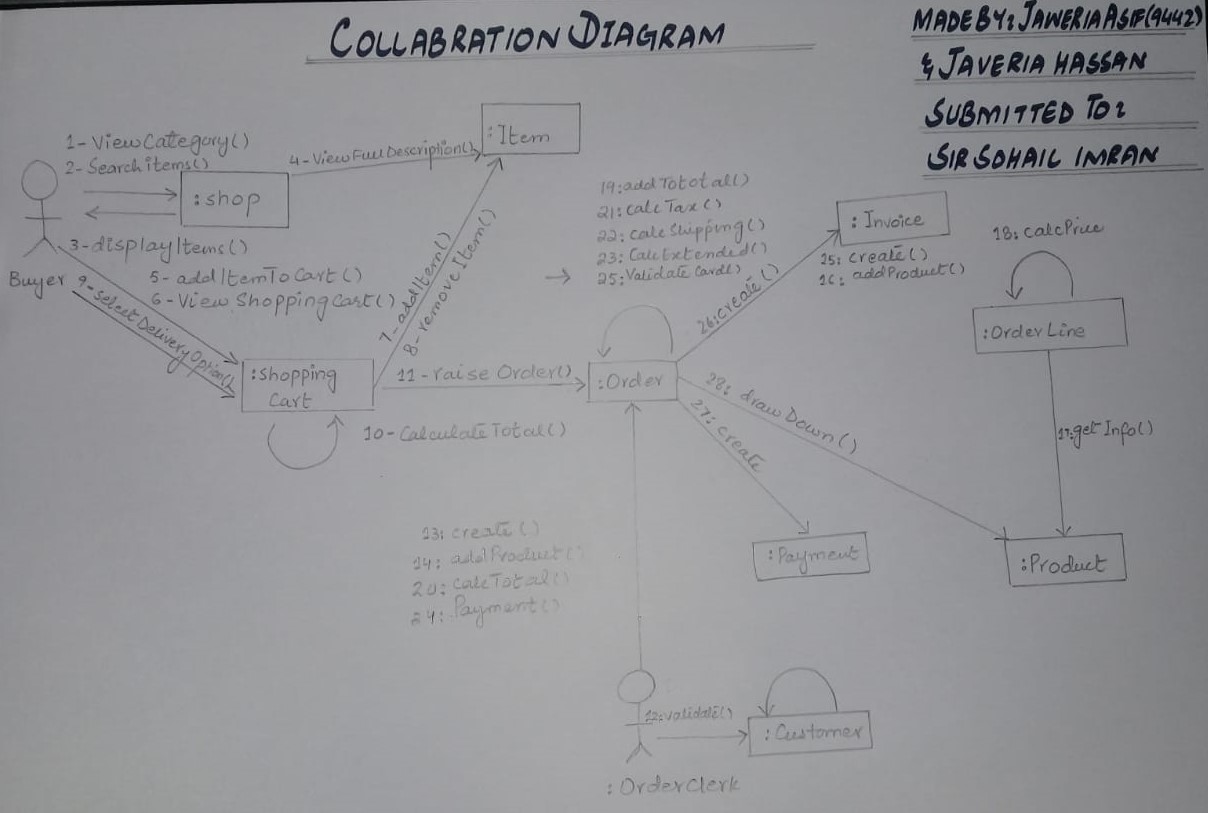 COLLABRATION DIAGRAM
MADE BY: JAWERIA ASIF(9442)
& JAVERIA HASSAN
SUBMITTED TO:
SIR SOHAIL IMRAN
1- View Category()
2- Search items()
:shop
3- displayItems()
Buyer
4- View Full Description()
:Item
5- addItemToCart()
6- View Shopping Cart()
9- Select Delivery Option()
7- addItem()
8- remove Item()
:shopping
Cart
10- Calculate Total()
11- raise Order()
19: addTototal()
21: calc Tax()
22: calc Shipping()
23: Calc Extended()
25: Validate Card()
:Order
26: create()
:Invoice
25: create()
26: addProduct()
18: calcPrice
:Order Line
17: getInfo()
28: draw Down()
27: create
:Payment
:Product
13: create()
14: addProduct()
20: calcTotal()
24: Payment()
12: validate()
:Customer
:OrderClerk